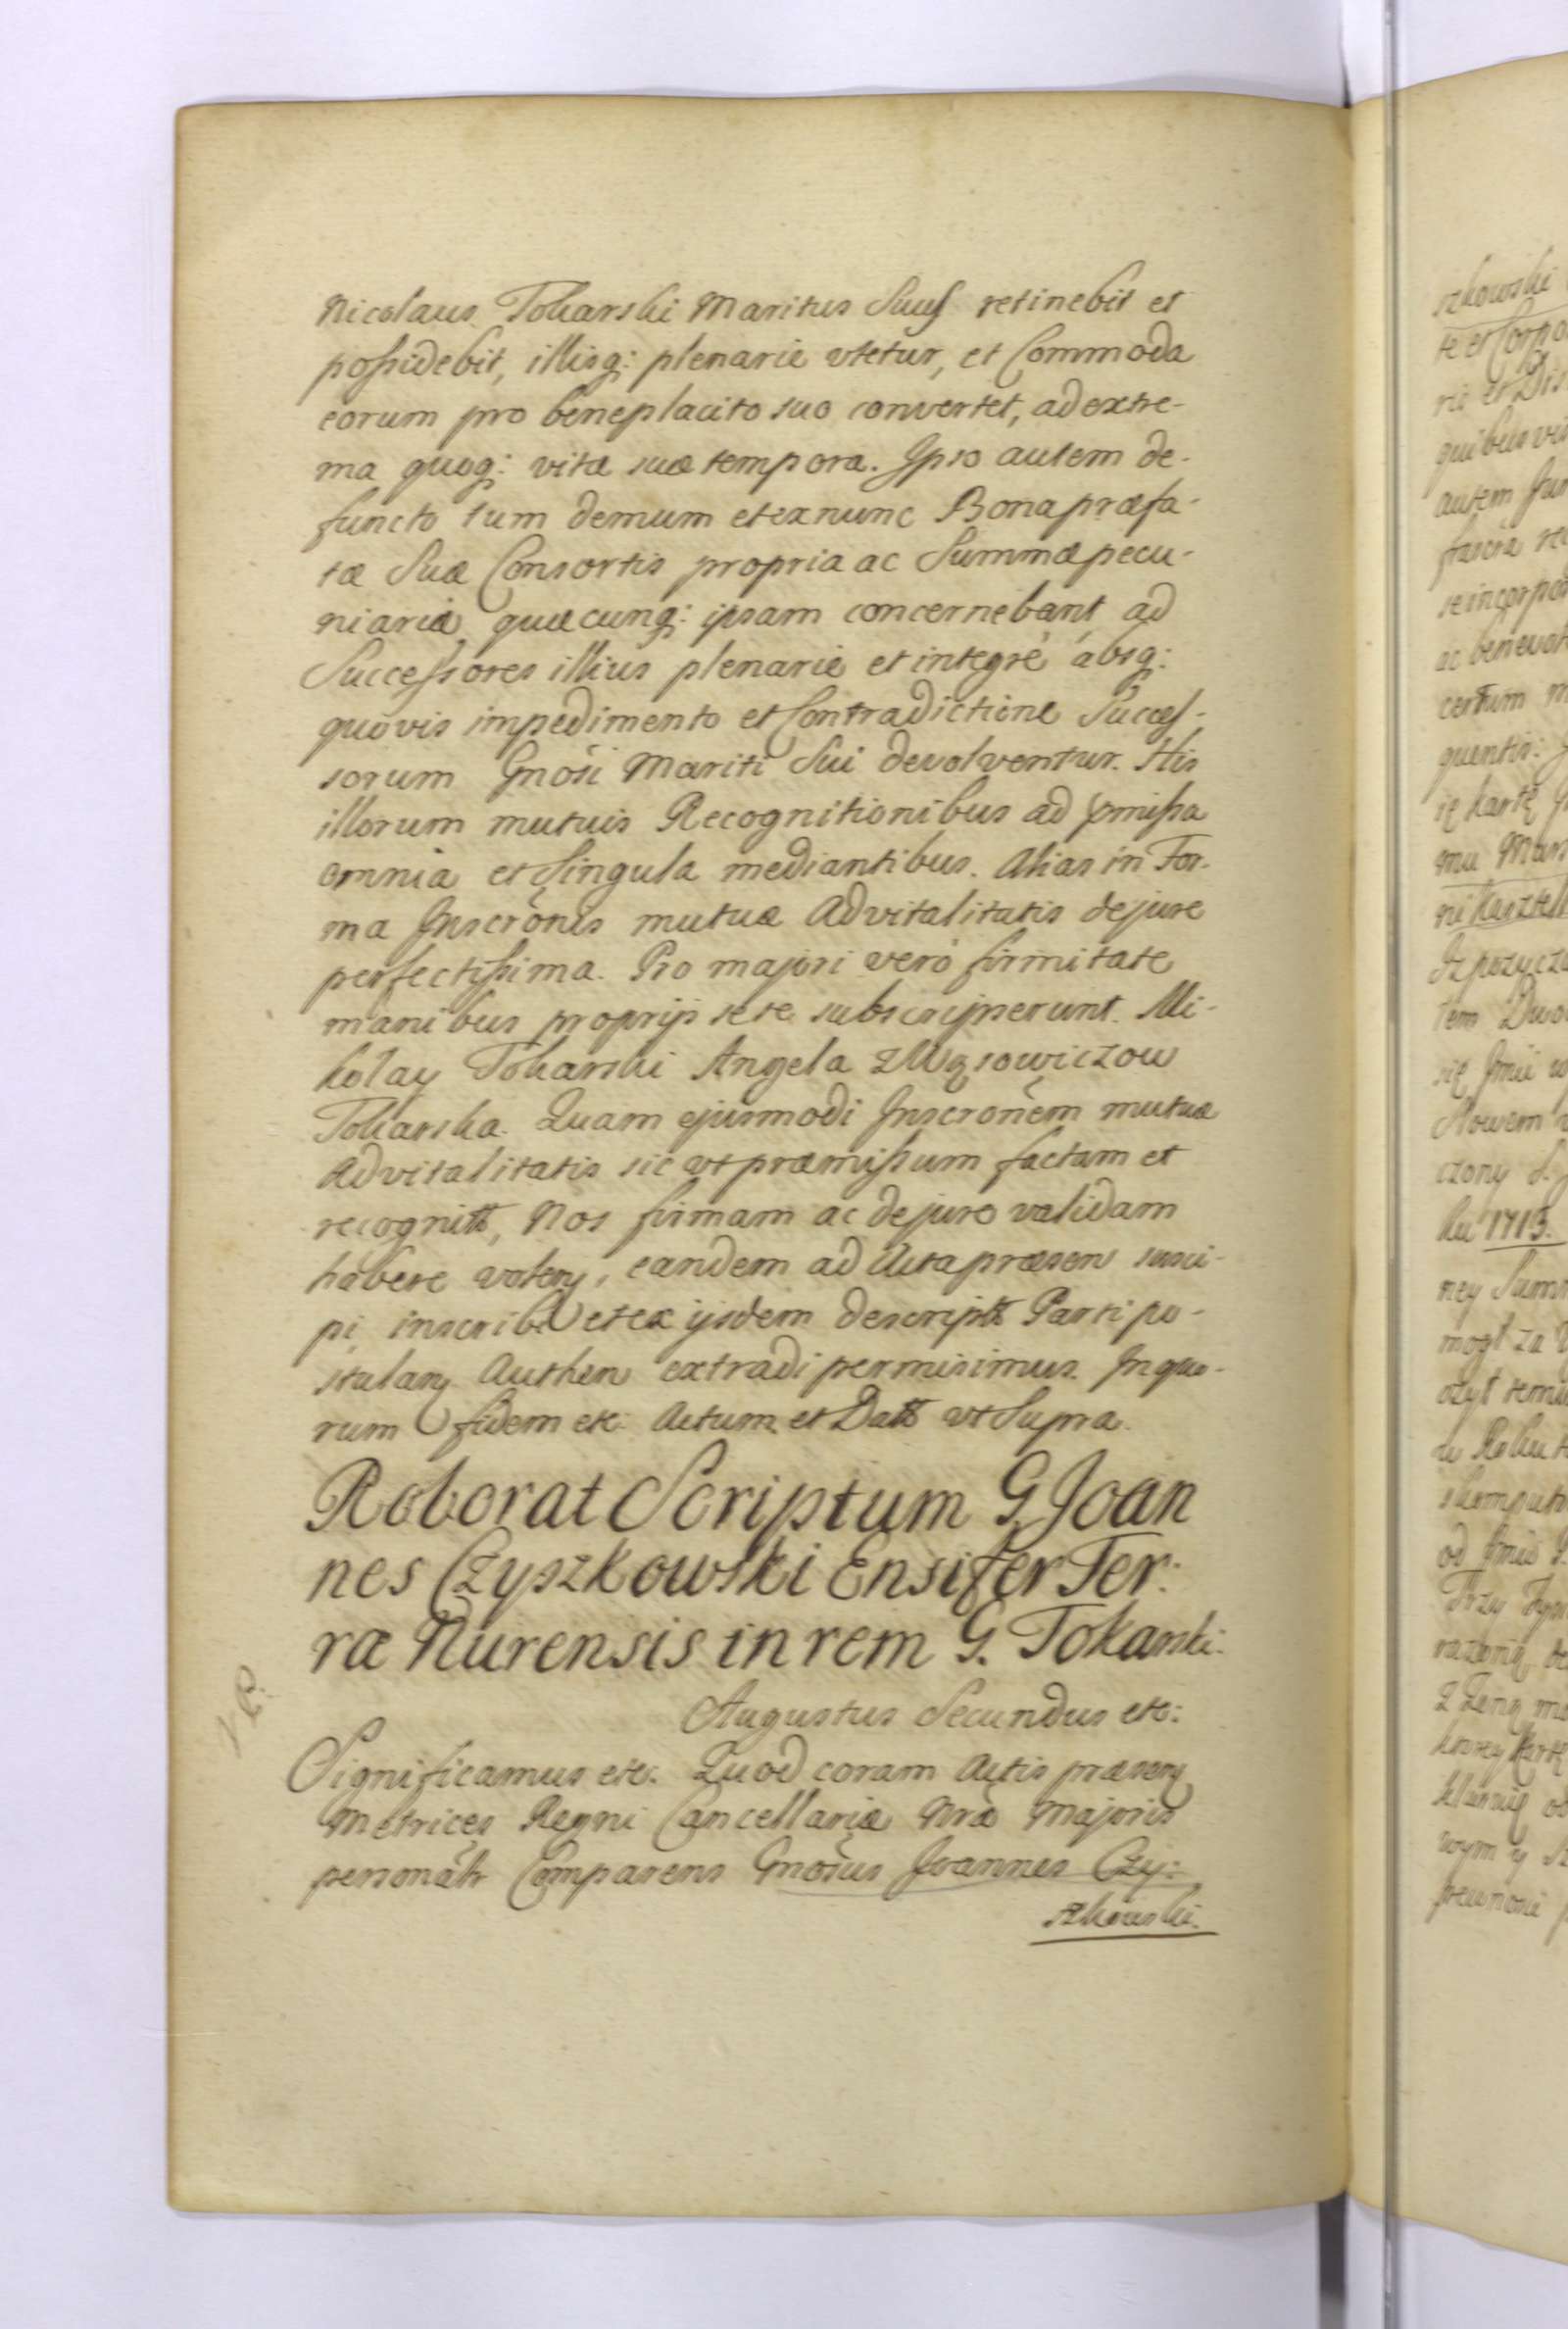 Nicolaus Tokarski Maritus Suus retinebit et
possidebit, illisq: plenarie utetur, et Commoda
eorum pro beneplacito suo convertet, ad extre-
ma quoq: vitæ suæ tempora. Ipso autem de-
functo tum demum et ex nunc Bona præfa-
tæ Suæ Consortis propria ac Summæ pecu-
niariæ quæcunq: ipsam concernebant ad
Successores illius plenarie et integrè absq:
quovis impedimento et Contradictione Succes-
sorum Gnosi Mariti Sui devolventur. His
illorum mutuis Recognitionibus ad pmissa
omnia et Singula mediantibus. Alias in For-
ma Inscronis mutuæ Advitalitatis de jure
perfectissima. Pro majori verò firmitate
manibus proprijs sese subscripserunt. Mi-
kołay Tokarski Angela z Mąsowiczow
Tokarska. Quam ejusmodi Inscronem mutuæ
Advitalitatis sic ut præmissum factam et
recognitt, Nos firmam ac de jure validam
habere voleñ, eandem ad Acta præsen susci-
pi, inscribi et ex ijsdem descriptt Parti po-
stulañ Authen extradi permisimus. In quo-
rum fidem etc: Actum et Datt ut Supra.
Roborat Scriptum G. Joan
nes Czyszkowski Ensifer Ter:
ræ Nurensis in rem G. Tokarski.
Augustus Secundus etc:
Significamus etc. Quod coram Actis præseñ
Metrices Regni Cancellariæ Nræ Majoris
personalr Comparens Gnosus Joannes Czy:
szkowski.
szkowski
te et Corpo
quibus
autem
ac benevol
certum
quentis:
się kartę
mu
Iz pozycza
tem
Słowem
czony
ku 1713.
ney Sum
mogł za
od
Trzy